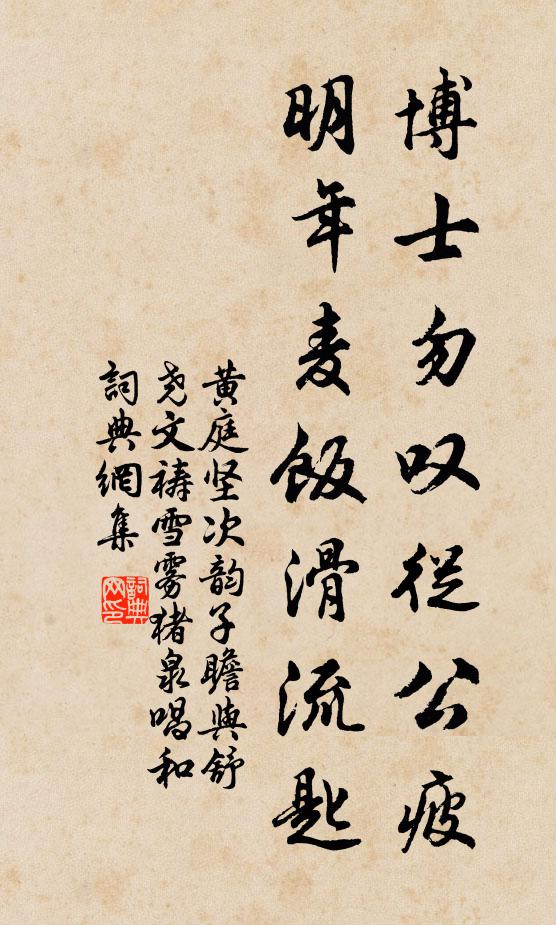 博士勿叹從公疲
明年麦飯滑流匙
黄庭坚次韵子瞻與舒
尧文祷雪雾猪泉唱和
詞典網集
詞典
网印